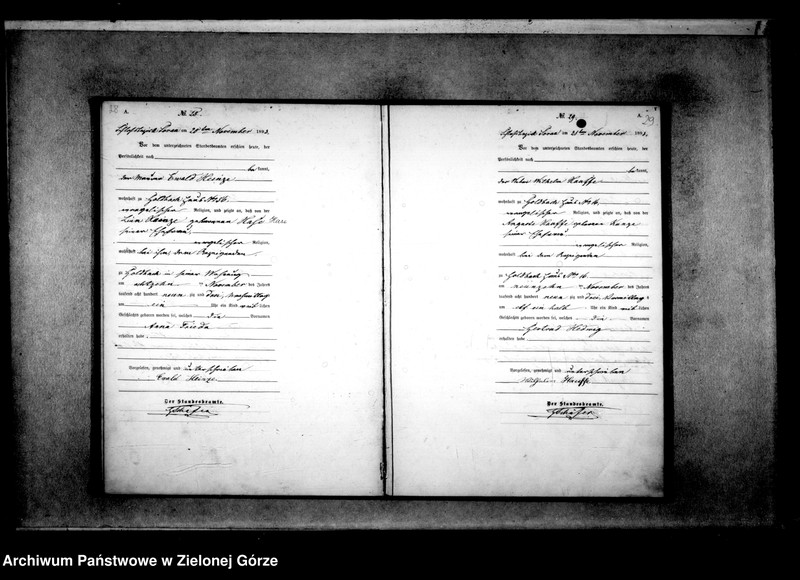 28
A.
№ 28.
am 20ten November 1893.
Vor dem unterzeichneten Standesbeamten erschien heute, der
Persönlichkeit nach
kannt,
der Maurer Ewald Heinze
wohnhaft zu Goldbach Haus № 16
evangelischer Religion, und zeigte an, daß von der
Heinze geborenen
seiner Ehefrau
evangelischer Religion,
wohnhaft bei ihm, dem Anzeigenden
zu Goldbach in seiner Wohnung
am achtzehn ten November des Jahres
tausend acht hundert neunzig und drei, Nachmittags
um ein Uhr ein Kind weiblichen
Geschlechts geboren worden sei, welches die Vornamen
Anna Frieda
erhalten habe.
Vorgelesen, genehmigt und unterschrieben
Ewald Heinze
Der Standesbeamte.
Schäfer
29
A.
№ 29.
am 21ten November 1893.
Vor dem unterzeichneten Standesbeamten erschien heute, der
Persönlichkeit nach
kannt,
der Wilhelm Hauffe
wohnhaft zu Goldbach Haus № 16
evangelischer Religion, und zeigte an, daß von der
Auguste Hauffe geborenen
seiner Ehefrau
evangelischer Religion,
wohnhaft bei dem Anzeigenden
zu Goldbach Haus № 16
am neunzehn ten November des Jahres
tausend acht hundert neunzig und drei, Vormittags
um elf ein halb Uhr ein Kind weiblichen
Geschlechts geboren worden sei, welches die Vornamen
Gertrud Hedwig
erhalten habe
Vorgelesen, genehmigt und unterschrieben
Wilhelm Hauffe
Der Standesbeamte.
Schäfer
Archiwum Państwowe w Zielonej Górze